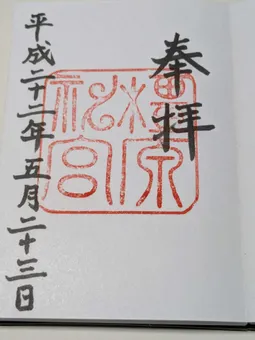 奉拝
橿原神宮
平成二十二年五月二十三日